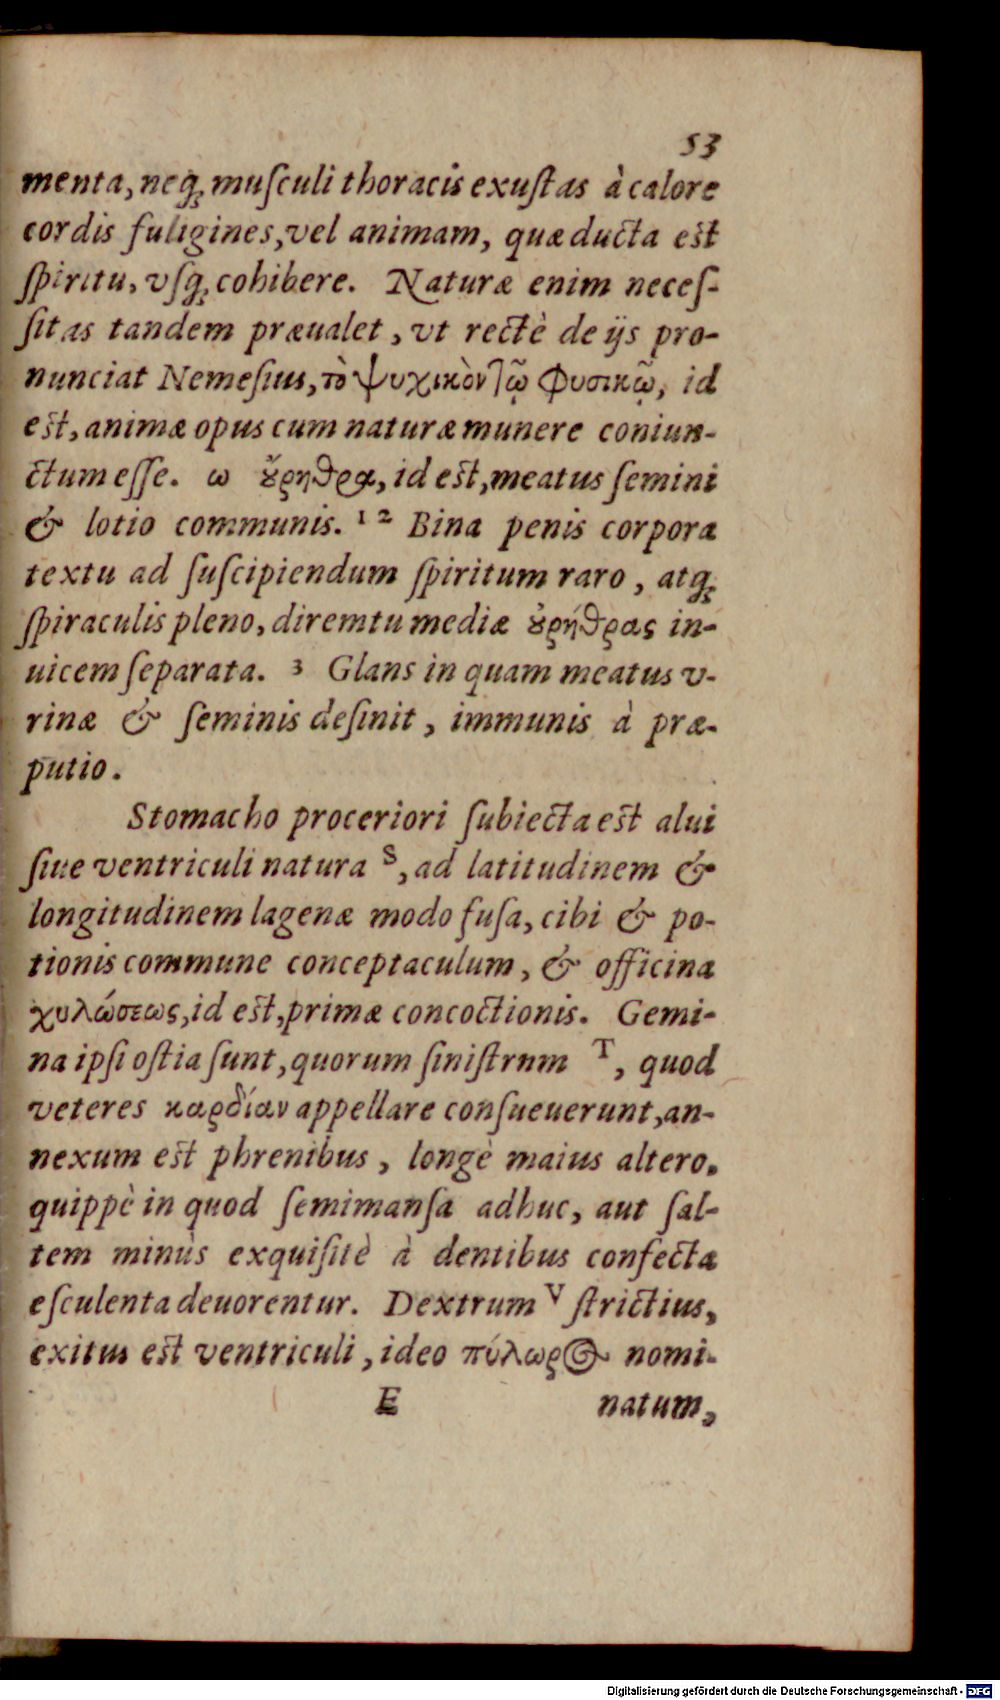 53
menta, neq; muſculi thoracis exuſtas à calore
cordis fuligines, vel animam, quæ ducta eſt
ſpiritu, vſq; cohibere. Naturæ enim neceſ-
ſitas tandem præualet, vt rectè de ijs pro-
nunciat Nemeſius, τὸ ψυχικὸν τῶ φυσικῶ, id
eſt, animæ opus cum naturæ munere coniun-
ctum eſſe. ω ȣ̓́ρηθρα, id eſt, meatus ſemini
& lotio communis. 1 2 Bina penis corpora
textu ad ſuſcipiendum ſpiritum raro, atq;
ſpiraculis pleno, diremtu mediæ ȣ̓ρήθρας in-
uicem ſeparata. 3 Glans in quam meatus v-
rinæ & ſeminis deſinit, immunis à præ-
putio.
Stomacho proceriori ſubiecta eſt alui
ſiue ventriculi natura S, ad latitudinem &
longitudinem lagenæ modo fuſa, cibi & po-
tionis commune conceptaculum, & officina
χυλώσεως, id eſt, primæ concoctionis. Gemi-
na ipſi oſtia ſunt, quorum ſiniſtrum T, quod
veteres καρδίαν appellare conſueuerunt, an-
nexum eſt phrenibus, longè maius altero.
quippè in quod ſemimanſa adhuc, aut ſal-
tem minùs exquiſitè à dentibus confecta
eſculenta deuorentur. Dextrum V ſtrictius,
exitus eſt ventriculi, ideo πύλωρος nomi-
E natum,
Digitalisierung gefördert durch die Deutsche Forschungsgemeinschaft - DFG